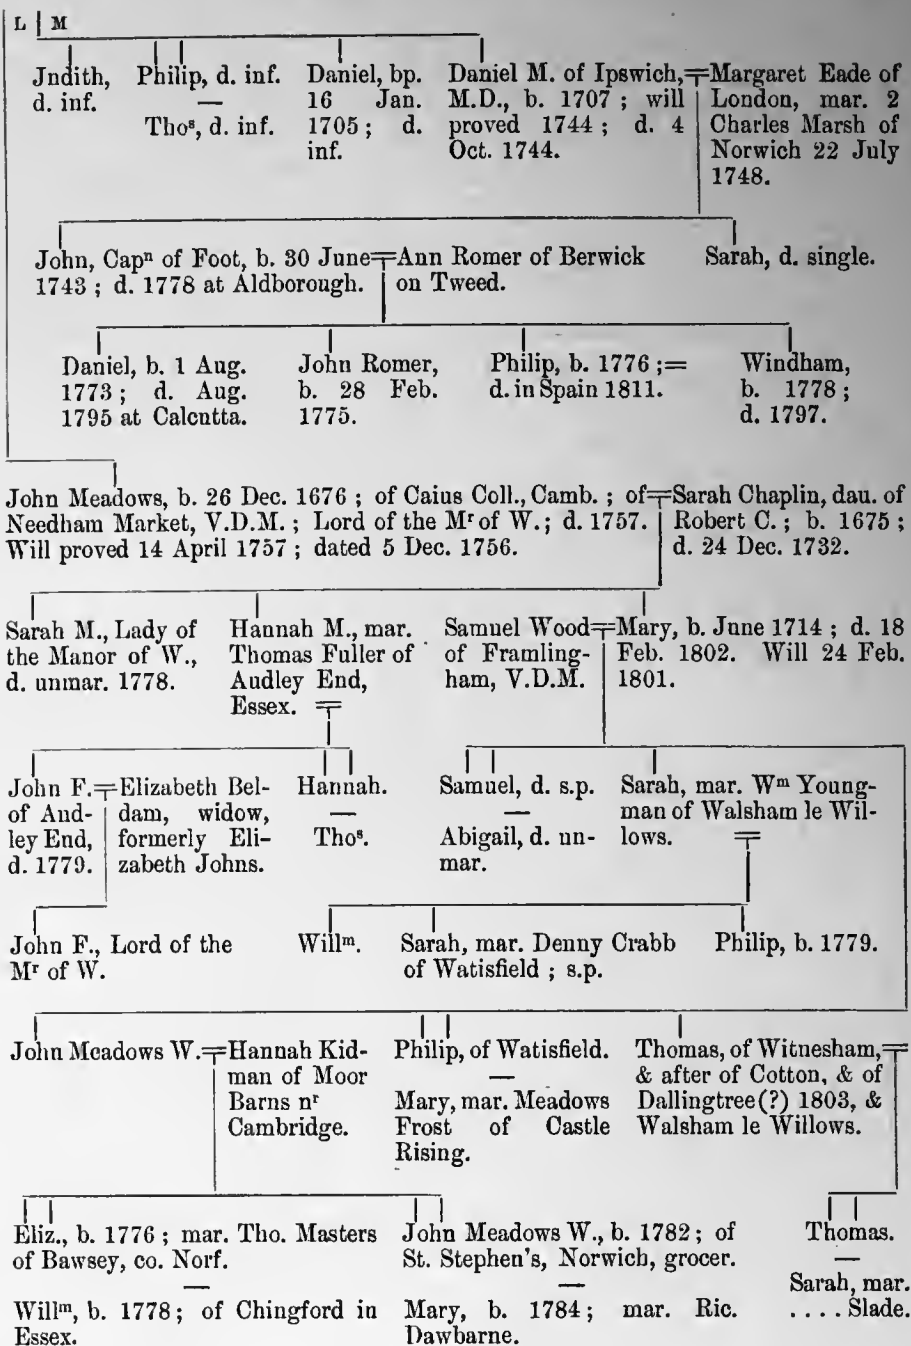 L | M
Jndith,
d. inf.
Philip, d. inf.
—
Thoˢ, d. inf.
Daniel, bp.
16 Jan.
1705; d.
inf.
Daniel M. of Ipswich,
M.D., b. 1707; will
proved 1744; d. 4
Oct. 1744.
Margaret Eade of
London, mar. 2
Charles Marsh of
Norwich 22 July
1748.
John, Capⁿ of Foot, b. 30 June
1743; d. 1778 at Aldborough.
Ann Romer of Berwick
on Tweed.
Sarah, d. single.
Daniel, b. 1 Aug.
1773; d. Aug.
1795 at Calcutta.
John Romer,
b. 28 Feb.
1775.
Philip, b. 1776;=
d. in Spain 1811.
Windham,
b. 1778;
d. 1797.
John Meadows, b. 26 Dec. 1676; of Caius Coll., Camb.; of
Needham Market, V.D.M.; Lord of the Mʳ of W.; d. 1757.
Will proved 14 April 1757; dated 5 Dec. 1756.
Sarah Chaplin, dau. of
Robert C.; b. 1675;
d. 24 Dec. 1732.
Sarah M., Lady of
the Manor of W.,
d. unmar. 1778.
Hannah M., mar.
Thomas Fuller of
Audley End,
Essex.
Samuel Wood
of Framling-
ham, V.D.M.
Mary, b. June 1714; d. 18
Feb. 1802. Will 24 Feb.
1801.
John F.
of Aud-
ley End,
d. 1779.
Elizabeth Bel-
dam, widow,
formerly Eli-
zabeth Johns.
Hannah.
—
Thoˢ.
Samuel, d. s.p.
—
Abigail, d. un-
mar.
Sarah, mar. Wᵐ Young-
man of Walsham le Wil-
lows.
John F., Lord of the
Mʳ of W.
Willᵐ.
Sarah, mar. Denny Crabb
of Watisfield; s.p.
Philip, b. 1779.
John Meadows W.
Hannah Kid-
man of Moor
Barns nʳ
Cambridge.
Philip, of Watisfield.
—
Mary, mar. Meadows
Frost of Castle
Rising.
Thomas, of Witnesham,
& after of Cotton, & of
Dallingtree(?) 1803, &
Walsham le Willows.
Eliz., b. 1776; mar. Tho. Masters
of Bawsey, co. Norf.
—
Willᵐ, b. 1778; of Chingford in
Essex.
John Meadows W., b. 1782; of
St. Stephen's, Norwich, grocer.
—
Mary, b. 1784; mar. Ric.
Dawbarne.
Thomas.
—
Sarah, mar.
.... Slade.